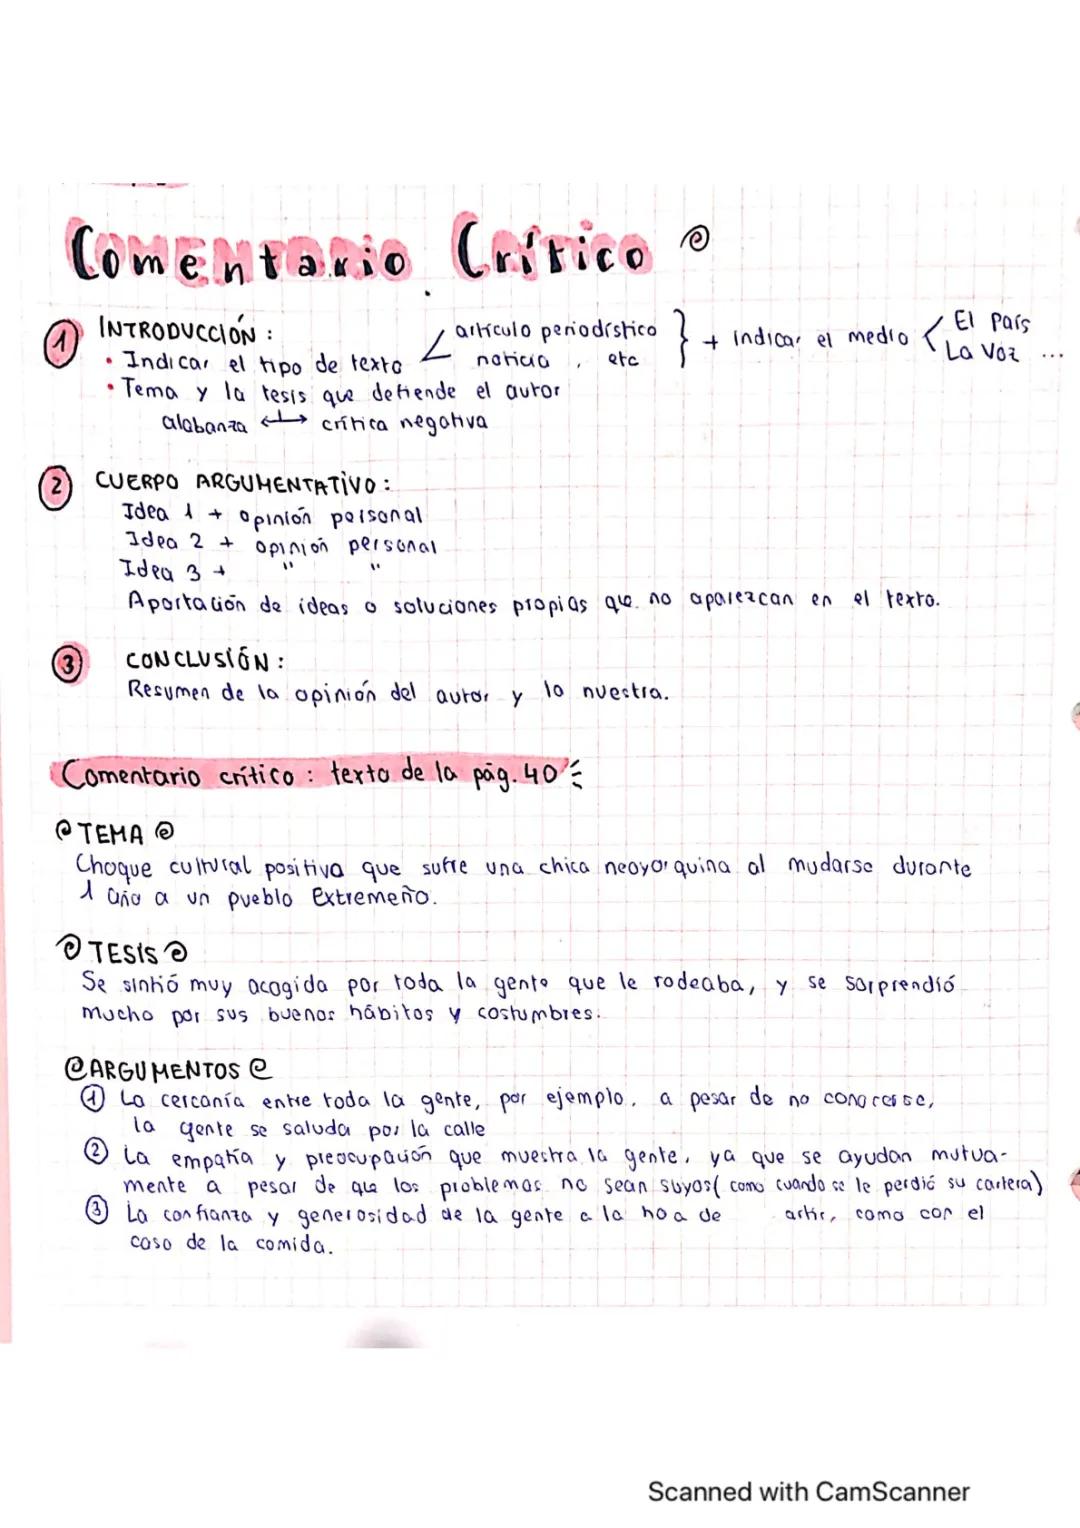 Comentario Crítico
1 INTRODUCCIÓN:
• Indicar el tipo de texto < artículo periodístico } + indicar el medio < El País
noticia, etc La Voz ...
• Tema y la tesis que defiende el autor
alabanza ↔ crítica negativa
2 CUERPO ARGUMENTATIVO:
Idea 1 + opinión personal
Idea 2 + opinión personal
Idea 3 + " "
Aportación de ideas o soluciones propias que no aparezcan en el texto.
3 CONCLUSIÓN:
Resumen de la opinión del autor y la nuestra.
Comentario crítico: texto de la pág. 40
TEMA
Choque cultural positiva que sufre una chica neoyorquina al mudarse durante
1 año a un pueblo Extremeño.
TESIS
Se sintió muy acogida por toda la gente que le rodeaba, y se sorprendió
mucho por sus buenos hábitos y costumbres.
ARGUMENTOS
1 La cercanía entre toda la gente, por ejemplo, a pesar de no conocerse,
la gente se saluda por la calle
2 La empatía y preocupación que muestra la gente, ya que se ayudan mutua-
mente a pesar de que los problemas no sean suyos (como cuando se le perdió su cartera)
3 La confianza y generosidad de la gente a la de como con el
caso de la comida.
Scanned with CamScanner